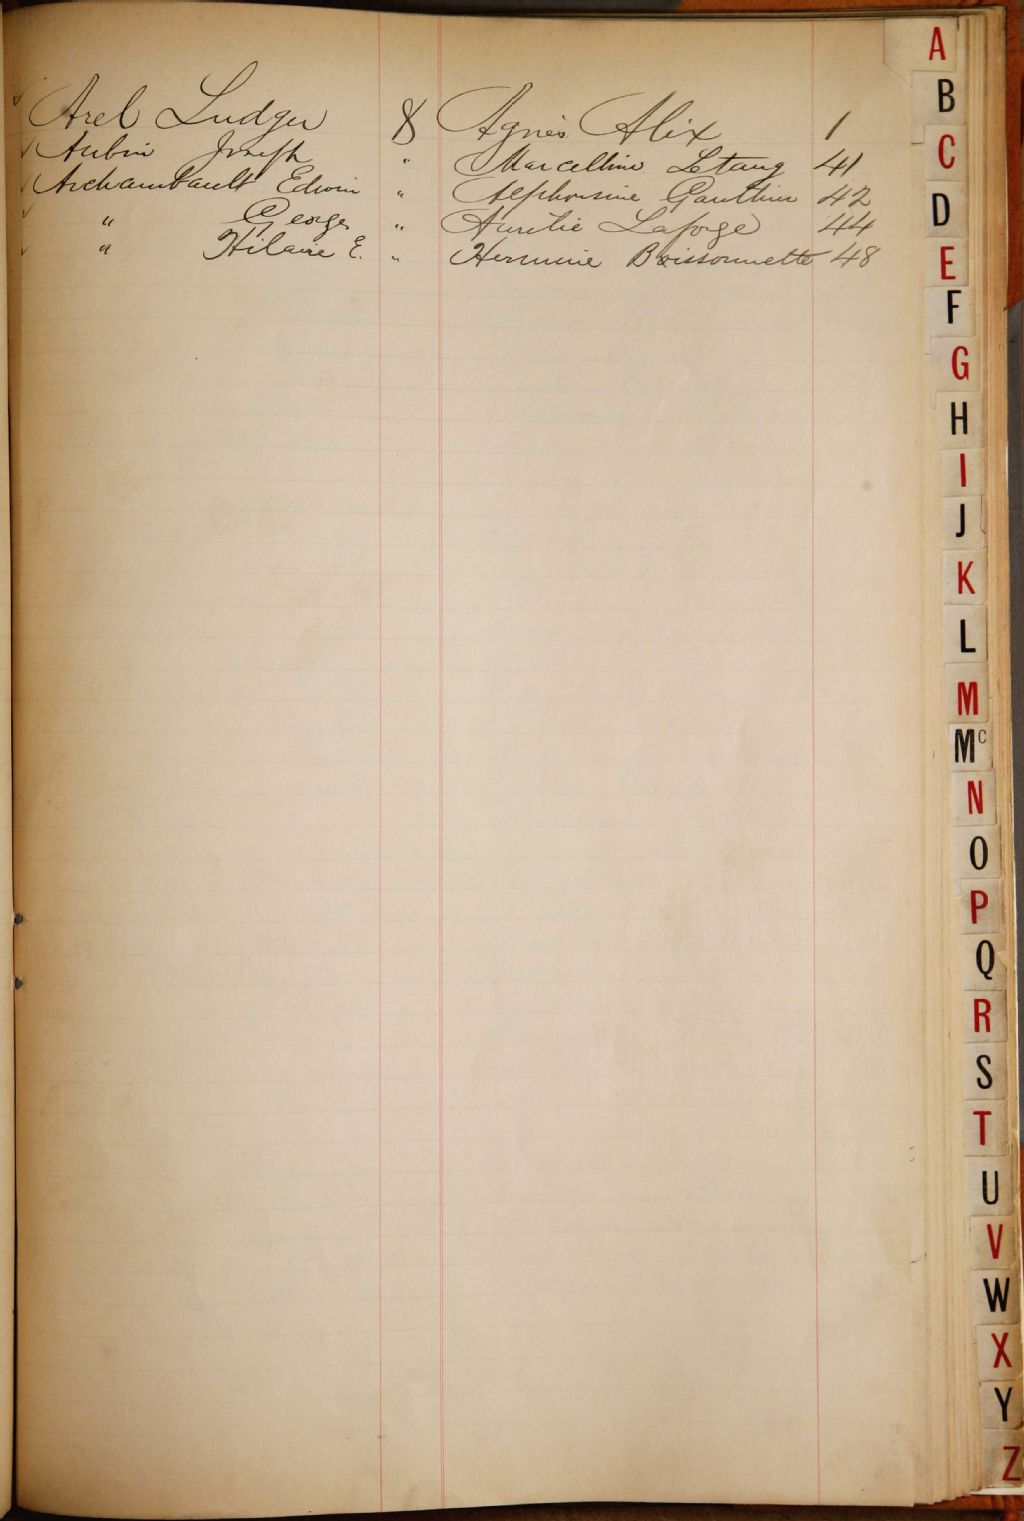 Arel Ludger & Agnes Alix 1
Aubin Joseph " Marcelline Letang 41
Archambault Edwin " Alphonsine Gauthier 42
" George " Aurelie Laforge 44
" Hilaire E. " Hermine Boissonnette 48
A
B
C
D
E
F
G
H
I
J
K
L
M
Mc
N
O
P
Q
R
S
T
U
V
W
X
Y
Z